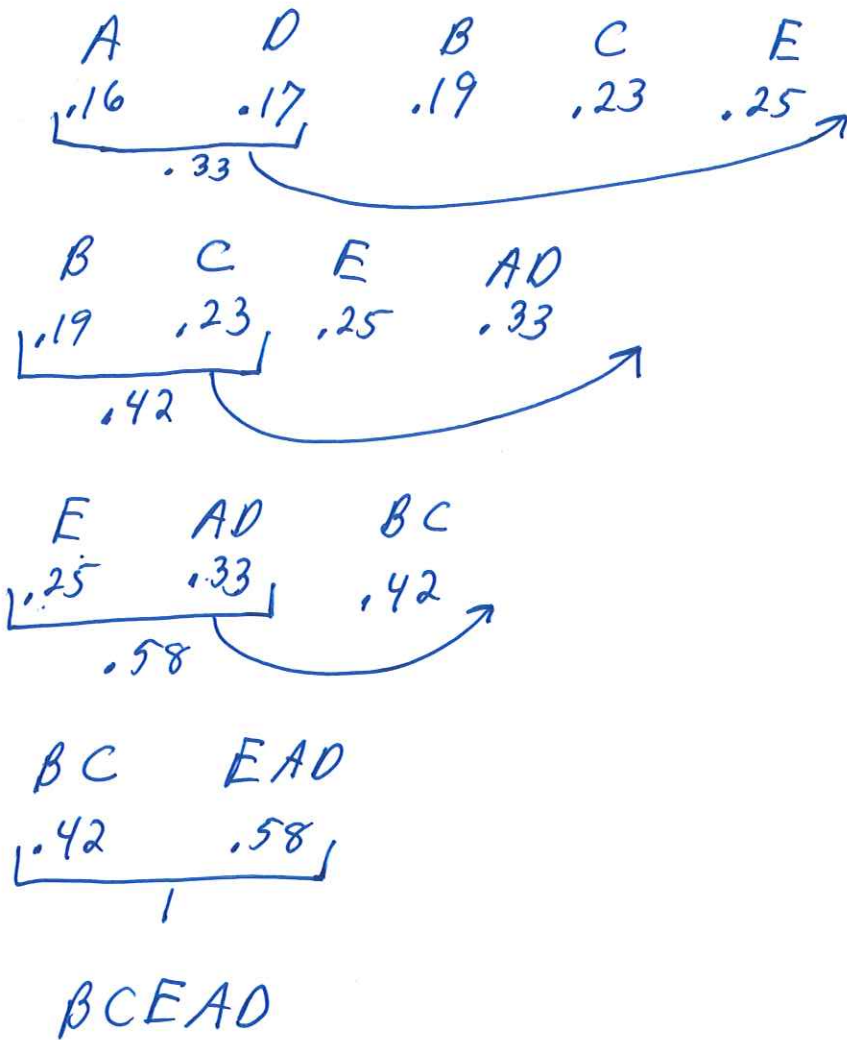 A D B C E
.16 .17 .19 .23 .25
.33
B C E AD
.19 .23 .25 .33
.42
E AD BC
.25 .33 .42
.58
BC EAD
.42 .58
1
BCEAD